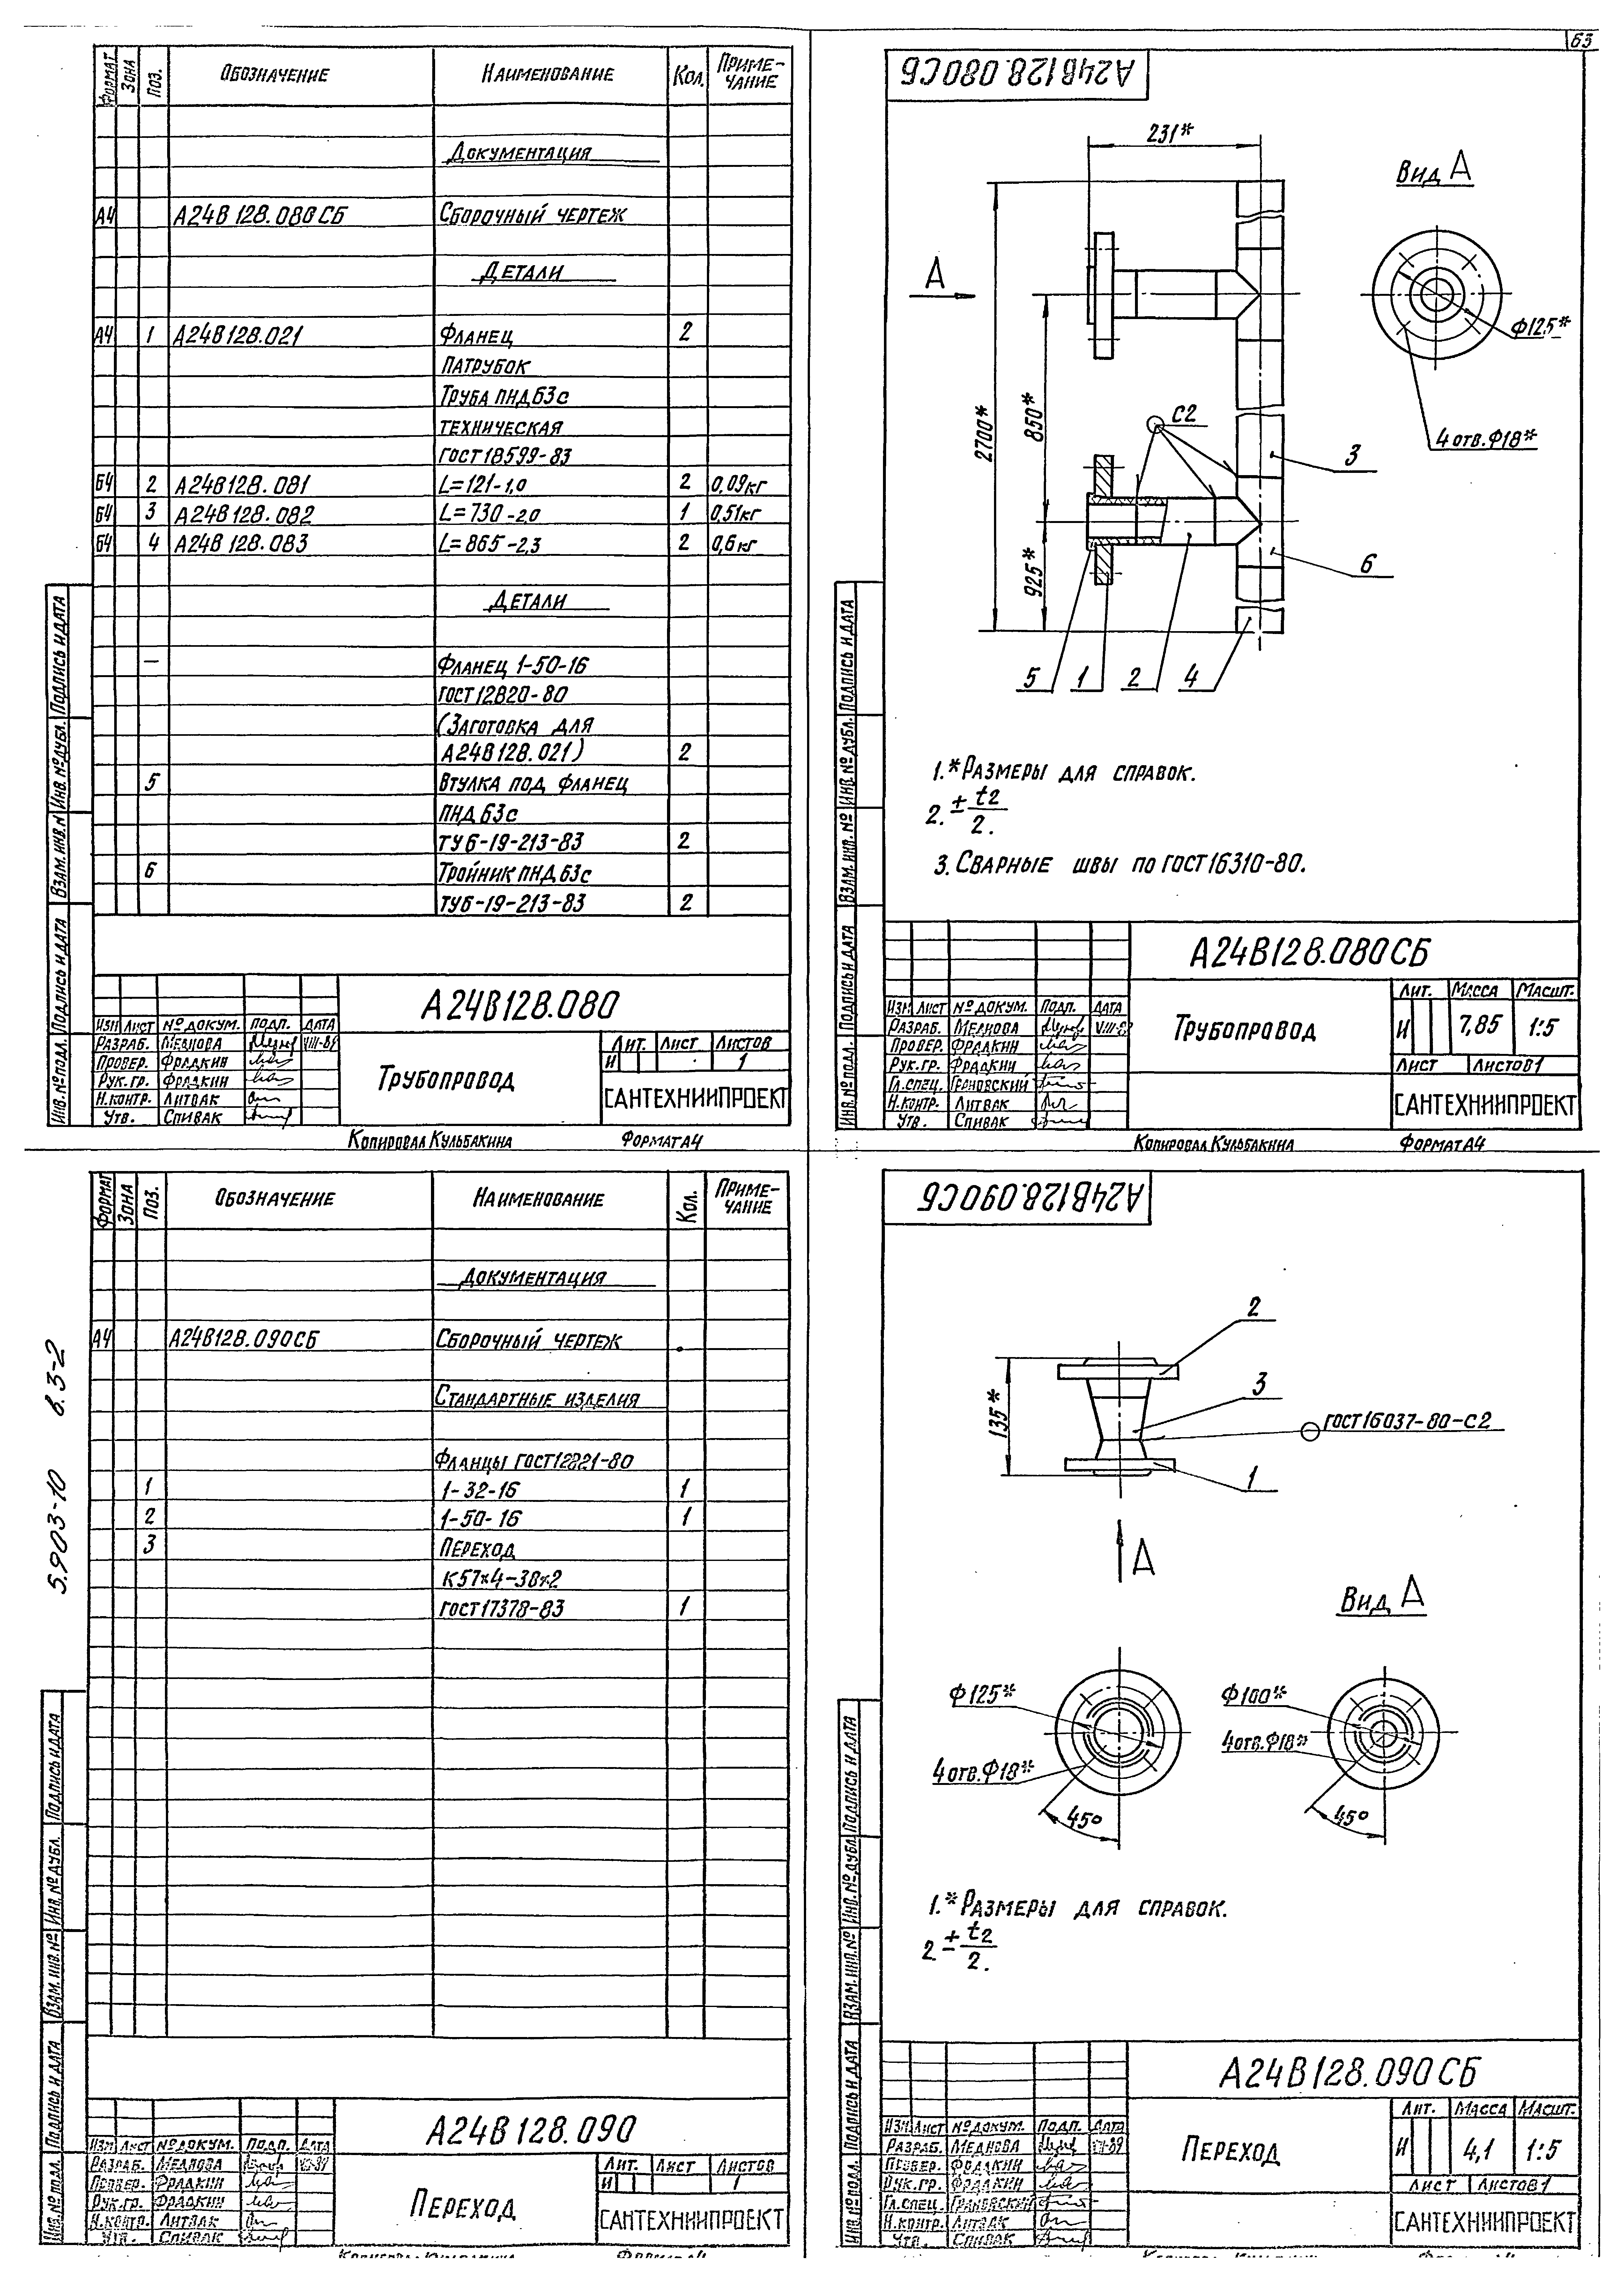 63
ФОРМАТ ЗОНА ПОЗ. ОБОЗНАЧЕНИЕ НАИМЕНОВАНИЕ КОЛ. ПРИМЕ-
ЧАНИЕ
ДОКУМЕНТАЦИЯ
А4 А24В128.080СБ СБОРОЧНЫЙ ЧЕРТЕЖ
ДЕТАЛИ
А4 1 А24В128.021 ФЛАНЕЦ 2
ПАТРУБОК
ТРУБА ПНД 63с
ТЕХНИЧЕСКАЯ
ГОСТ 18599-83
Б4 2 А24В128.081 L=121-1,0 2 0,09кг
Б4 3 А24В128.082 L=730-2,0 1 0,51кг
Б4 4 А24В128.083 L=865-2,3 2 0,6кг
ДЕТАЛИ
— ФЛАНЕЦ 1-50-16
ГОСТ 12820-80
(ЗАГОТОВКА ДЛЯ
А24В128.021) 2
5 ВТУЛКА ПОД ФЛАНЕЦ
ПНД 63с
ТУ6-19-213-83 2
6 ТРОЙНИК ПНД 63с
ТУ6-19-213-83 2
ИНВ.№ПОДЛ. ПОДПИСЬ И ДАТА ВЗАМ.ИНВ.№ ИНВ.№ДУБЛ. ПОДПИСЬ И ДАТА
А24В128.080
ИЗМ ЛИСТ №ДОКУМ. ПОДП. ДАТА
РАЗРАБ. МЕДНОВА VIII-89
ПРОВЕР. ФРАДКИН
РУК.ГР. ФРАДКИН
Н.КОНТР. ЛИТВАК
УТВ. СПИВАК
ТРУБОПРОВОД
ЛИТ. ЛИСТ ЛИСТОВ
И 1
САНТЕХНИИПРОЕКТ
КОПИРОВАЛ КУЛЬБАКИНА ФОРМАТ А4
А24В128.080СБ
231*
ВИД А
А
2700*
850*
925*
С2
Ф125*
4 отв. Ф18*
3
6
5 1 2 4
1.*РАЗМЕРЫ ДЛЯ СПРАВОК.
2. ± t2
2.
3. СВАРНЫЕ ШВЫ ПО ГОСТ 16310-80.
ИНВ.№ПОДЛ. ПОДПИСЬ И ДАТА ВЗАМ. ИНВ. № ИНВ.№ДУБЛ. ПОДПИСЬ И ДАТА
А24В128.080СБ
ИЗМ ЛИСТ №ДОКУМ. ПОДП. ДАТА
РАЗРАБ. МЕДНОВА VIII-89
ПРОВЕР. ФРАДКИН
РУК.ГР. ФРАДКИН
ГЛ.СПЕЦ. ГРАНОВСКИЙ
Н.КОНТР. ЛИТВАК
УТВ. СПИВАК
ТРУБОПРОВОД
ЛИТ. МАССА МАСШТ.
И 7,85 1:5
ЛИСТ ЛИСТОВ 1
САНТЕХНИИПРОЕКТ
КОПИРОВАЛ КУЛЬБАКИНА ФОРМАТ А4
5.903-10 в.3-2
ФОРМАТ ЗОНА ПОЗ. ОБОЗНАЧЕНИЕ НАИМЕНОВАНИЕ КОЛ. ПРИМЕ-
ЧАНИЕ
ДОКУМЕНТАЦИЯ
А4 А24В128.090СБ СБОРОЧНЫЙ ЧЕРТЕЖ
СТАНДАРТНЫЕ ИЗДЕЛИЯ
ФЛАНЦЫ ГОСТ 12821-80
1 1-32-16 1
2 1-50-16 1
3 ПЕРЕХОД
К57×4-38×2
ГОСТ 17378-83 1
ИНВ.№ПОДЛ. ПОДПИСЬ И ДАТА ВЗАМ. ИНВ.№ ИНВ. №ДУБЛ. ПОДПИСЬ И ДАТА
А24В128.090
ИЗМ ЛИСТ №ДОКУМ. ПОДП. ДАТА
РАЗРАБ. МЕДНОВА VIII-89
ПРОВЕР. ФРАДКИН
РУК.ГР. ФРАДКИН
Н.КОНТР. ЛИТВАК
УТВ. СПИВАК
ПЕРЕХОД
ЛИТ. ЛИСТ ЛИСТОВ
И 1
САНТЕХНИИПРОЕКТ
КОПИРОВАЛ КУЛЬБАКИНА ФОРМАТ А4
А24В128.090СБ
2
3
ГОСТ 16037-80-С2
1
135*
А
ВИД А
Ф125*
4 отв. Ф18*
45°
Ф100*
4 отв. Ф18*
45°
1.*РАЗМЕРЫ ДЛЯ СПРАВОК.
2. ± t2
2.
ИНВ.№ПОДЛ. ПОДПИСЬ И ДАТА ВЗАМ. ИНВ.№ ИНВ.№ДУБЛ. ПОДПИСЬ И ДАТА
А24В128.090СБ
ИЗМ ЛИСТ №ДОКУМ. ПОДП. ДАТА
РАЗРАБ. МЕДНОВА VIII-89
ПРОВЕР. ФРАДКИН
РУК.ГР. ФРАДКИН
ГЛ.СПЕЦ. ГРАНОВСКИЙ
Н.КОНТР. ЛИТВАК
УТВ. СПИВАК
ПЕРЕХОД
ЛИТ. МАССА МАСШТ.
И 4,1 1:5
ЛИСТ ЛИСТОВ 1
САНТЕХНИИПРОЕКТ